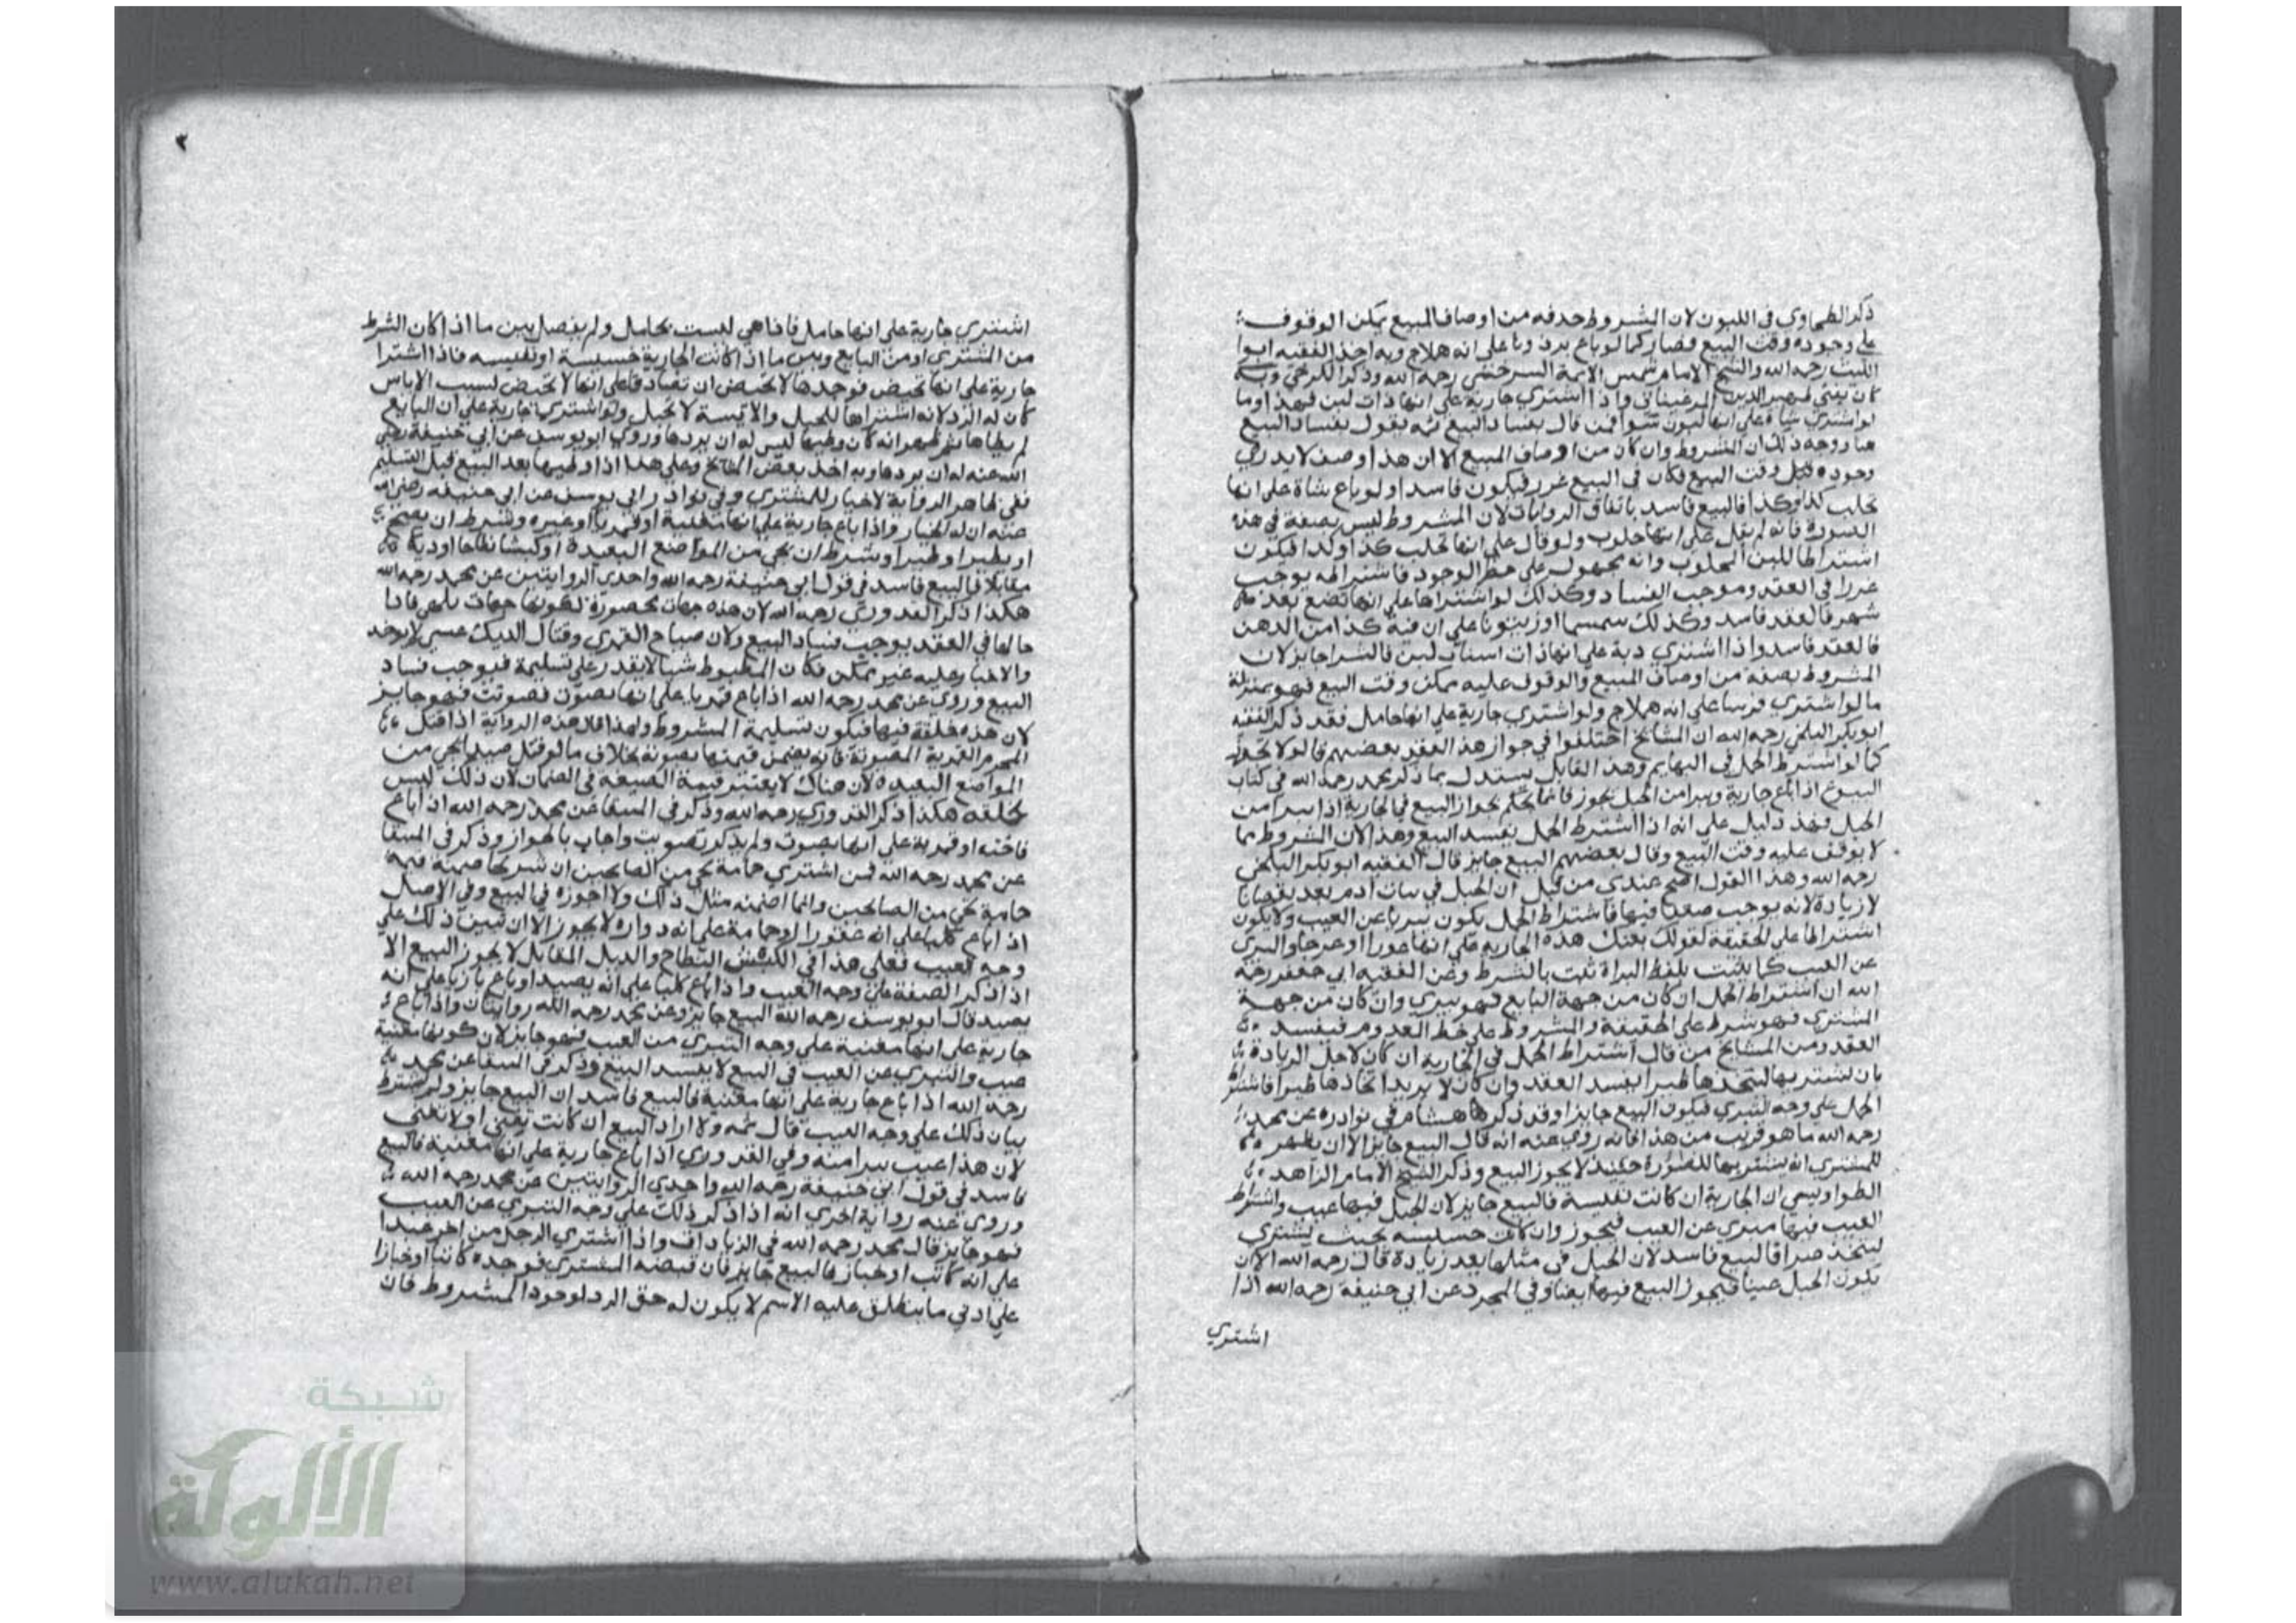 ذكر الطحاوي في اللبون لان المشروط حدفه من اوصاف المبيع يمكن الوقوف
علي وجوده وقت البيع فصار كما لو باع برذونا على انه هملاج وبه اخذ الفقيه ابوا
الليث رحمه الله والشيخ الامام شمس الايمة السرخسي رحمه الله وذكر الكرخي وبه
كان يفتي ظهير الدين المرغيناني واذا اشتري جارية علي انها ذات لبن فهذا وما
لو اشتري شاة على انها لبون سوا فمن قال بفساد البيع ثمه يقول بفساد البيع
هنا ووجه ذلك ان المشروط وان كان من اوصاف المبيع الا ان هذا وصف لا يدري
وجوده قبل وقت البيع فكان في البيع غرر فيكون فاسدا ولو باع شاة على انها
تحلب كذا وكذا فالبيع فاسد باتفاق الروايات لان المشروط ليس بصفة في هذه
الصورة فانه لم يقل على انها حلوب ولو قال علي انها تحلب كذا وكذا فيكون
اشتراطا للبن المحلوب وانه مجهول على خطر الوجود فاشتراطه يوجب
غررا في العقد وموجب الفساد وكذلك لو اشتراها على انها تضع بعد
شهر فالعقد فاسد وكذلك سمسما او زيتونا على ان فيه كذا من الدهن
فالعقد فاسد واذا اشتري دبة علي انها ذات لبن فالشرا جايز لان
المشروط بصفة من اوصاف المبيع والوقوف عليه ممكن وقت البيع فهو بمنزلة
ما لو اشتري فرسا على انه هملاج ولو اشتري جارية علي انها حامل فقد ذكر الفقيه
ابو بكر البلخي رحمه الله ان المشايخ اختلفوا في جواز هذا العقد بعضهم قالوا لا يجوز
كما لو اشترط الحمل في البهايم وهذا القايل يستدل بما ذكر محمد رحمه الله في كتاب
البيوع اذا باع جارية وبرا من الحبل يجوز فانما يحكم بجواز البيع في الجارية اذا تبرا من
الحبل فهذا دليل علي انه اذا اشترط الحمل يفسد البيع وهذا لان المشروط مما
لا يوقف عليه وقت البيع وقال بعضهم البيع جايز قال الفقيه ابو بكر البلخي
رحمه الله وهذا القول اصح عندي من قبل ان الحبل في بنات ادم يعد نقصانا
لا زيادة لانه يوجب ضعفا فيها فاشتراط الحمل يكون تبريا عن العيب ولا يكون
اشتراطا على الحقيقة كقولك بعتك هذه الجارية علي انها عورا او عرجا والتبري
عن العيب كما يثبت بلفظ البراة ثبت بالشرط وعن الفقيه ابي جعفر رحمه
الله ان اشتراط الحمل ان كان من جهة البايع فهو تبري وان كان من جهة
المشتري فهو شرط على الحقيقة والمشروط علي خطر العدوم فيفسد
العقد ومن المشايخ من قال اشتراط الحمل في الجارية ان كان لاجل الزيادة
بان يشتريها ليتخذها ظيرا يفسد العقد وان كان لا يريد اتخاذها ظيرا فاشتراط
الحمل علي وجه التبري فيكون البيع جايزا وقد ذكر هشام في نوادره عن محمد
رحمه الله ما هو قريب من هذا فانه روي عنه انه قال البيع جايز الا ان يظهر
للمشتري انه يشتريها للظؤرة حينئذ لا يجوز البيع وذكر الشيخ الامام الزاهد
الطواويسي ان الجارية ان كانت نفيسة فالبيع جايز لان الحبل فيها عيب واشتراط
العيب فيها مبري عن العيب فيجوز وان كانت خسيسة بحيث يشتري
ليتخذ فالبيع فاسد لان الحبل في مثلها يعد زيادة قال رحمه الله الا ان
يكون الحبل عيبا فيجوز البيع فيها وفي المجرد عن ابي حنيفة رحمه الله اذا
اشتري
٢
اشتري جارية على انها حامل فاذا هي ليست بحامل ولم يفصل بين ما اذا كان الشرط
من المشتري او من البايع وبين ما اذا كانت الجارية خسيسة او نفيسة فاذا اشترا
جارية على انها تحيض فوجدها لا تحيض ان تصادقا على انها لا تحيض لسبب الاياس
كان له الرد لانه اشتراها للحبل والايسة لا تحبل ولو اشتري جارية علي ان البايع
لم يطاها ثم ظهر انه كان وطيها ليس له ان يردها وروي ابو يوسف عن ابي حنيفة رضي
الله عنه له ان يردها وبه اخذ بعض المشايخ وعلى هذا اذا وطيها بعد البيع قبل التسليم
ففي ظاهر الرواية لا خيار للمشتري وفي نوادر ابي يوسف عن ابي حنيفة رضي الله
عنه ان له الخيار واذا باع جارية علي انها مغنية او قمريا او غيره وشرط ان يصيح
او يطير او طيرا وشرط ان يجي من المواضع البعيدة او كبشا نطاحا او ديكا
مقاتلا فالبيع فاسد في قول ابي حنيفة رحمه الله واحدي الروايتين عن محمد رحمه الله
هكذا ذكر القدوري رحمه الله لان هذه جهات محصورة لكونها جهات تلهي فاذا
في العقد يوجب فساد البيع ولان صياح القمري وقتال الديك عسي لا يوجد
والاجبار عليه غير ممكن فكان المشروط شيا لا يقدر علي تسليمه فيوجب فساد
البيع وروي عن محمد رحمه الله اذا باع قمريا علي انها تصوت فصوتت فهو جايز
لان هذه خلقة فيها فيكون تسليمه المشروط ولهذا قال هذه الرواية اذا قتل
المحرم القمرية المصوتة فانه يضمن قيمتها مصوتة بخلاف ما لو قتل صيدا يجي من
المواضع البعيدة لان هناك لا يعتبر قيمة الصيعه في الضمان لان ذلك ليس
بخلقه هكذا ذكر القدوري رحمه الله وذكر في المنتقا عن محمد رحمه الله اذا باع
فاخته او قمرية علي انها تصوت ولم يذكر تصويت واجاب بالجواز وذكر في المنتقا
عن محمد رحمه الله فمن اشتري حمامة تجي من الصالحين ان ضمنه قيمة
حمامة تجي من الصالحين وانما اضمنه مثل ذلك ولا اجوزه في البيع وفي الاصل
اذا باع كلبا علي انه عقورا او حمامة على انه دوارة لا يجوز الا ان تبين ذلك علي
وجه العيب فعلي هذا في الكبش النطاح والديك المقاتل لا يجوز البيع الا
اذا ذكر الصفة علي وجه العيب واذا باع كلبا علي انه يصيد او باع بازيا علي انه
يصيد قال ابو يوسف رحمه الله البيع جايز وعن محمد رحمه الله روايتان واذا باع
جارية على انها مغنية علي وجه التبري من العيب فهو جايز لان كونها مغنية
عيب والتبري عن العيب في البيع لا يفسد البيع وذكر في المنتقا عن محمد
رحمه الله اذا باع جارية علي انها مغنية فالبيع فاسد ان البيع جايز ولم يشترط
بيان ذلك علي وجه العيب قال ثمه ولا اراد البيع ان كانت تغني او لا تغني
لان هذا عيب تبرا منه وفي القدوري اذا باع جارية علي انها مغنية فالبيع
فاسد في قول ابي حنيفة رحمه الله واحدي الروايتين عن محمد رحمه الله
وروي عنه رواية اخري انه اذا ذكر ذلك علي وجه التبري عن العيب
فهو جايز قال محمد رحمه الله في الزيادات واذا اشتري الرجل من اخر عبدا
علي انه كاتب او خباز فالبيع جايز فان قبضه المشتري فوجده كاتبا او خبازا
علي ادني ما ينطلق عليه الاسم لا يكون له حق الرد لوجود المشروط فان
شبكة
الألوكة
www.alukah.net